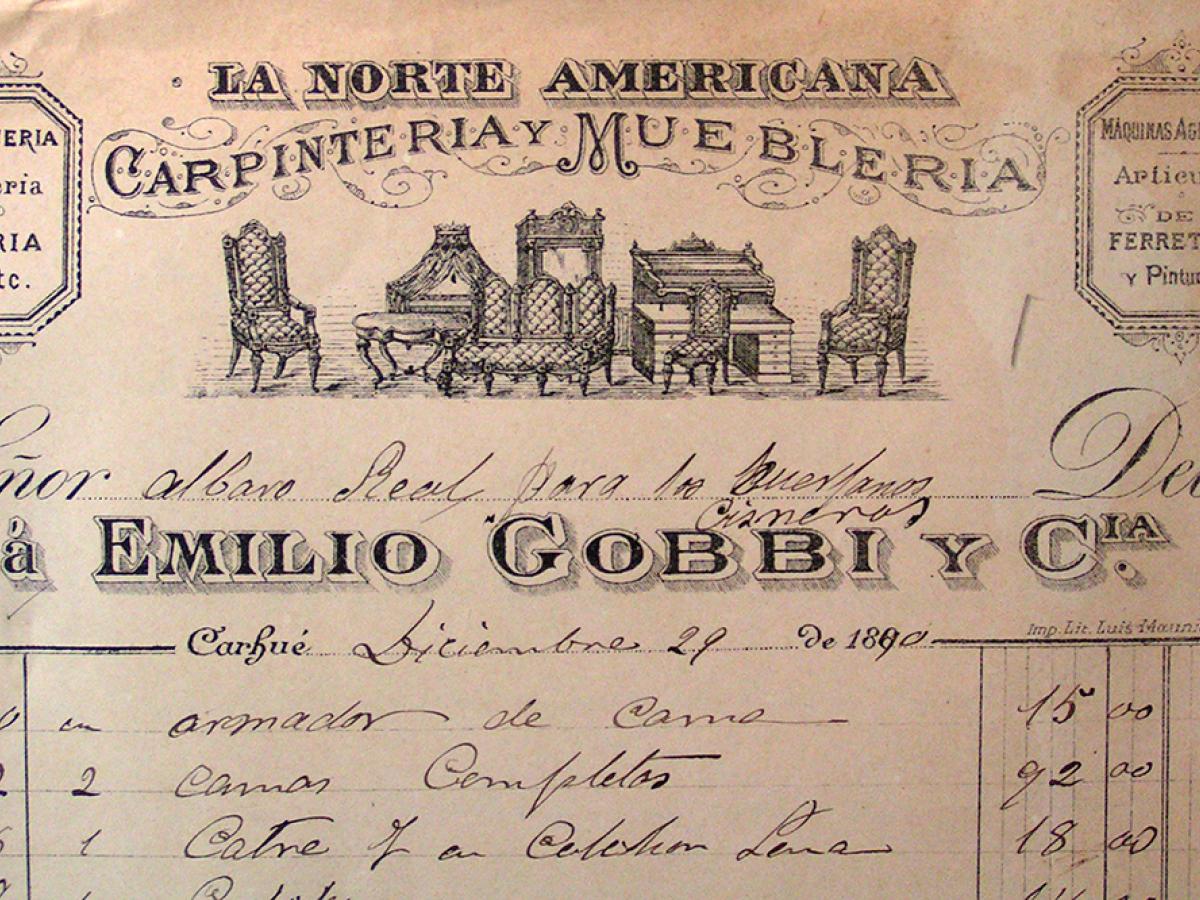 LA NORTE AMERICANA
CARPINTERIA Y MUEBLERIA
TERIA
eria
RIA
tc.
MÁQUINAS AG
Articu
DE
FERRET
Y Pintur
ñor albaro Real para los huerfanos De
Cisneros
á EMILIO GOBBI Y CIA.
Imp. Lit. Luis Mauni
Carhué Diciembre 29 de 1890
un armador de cama 15 00
2 2 camas Completas 92 00
1 Catre y un Colchon Lana 18 00